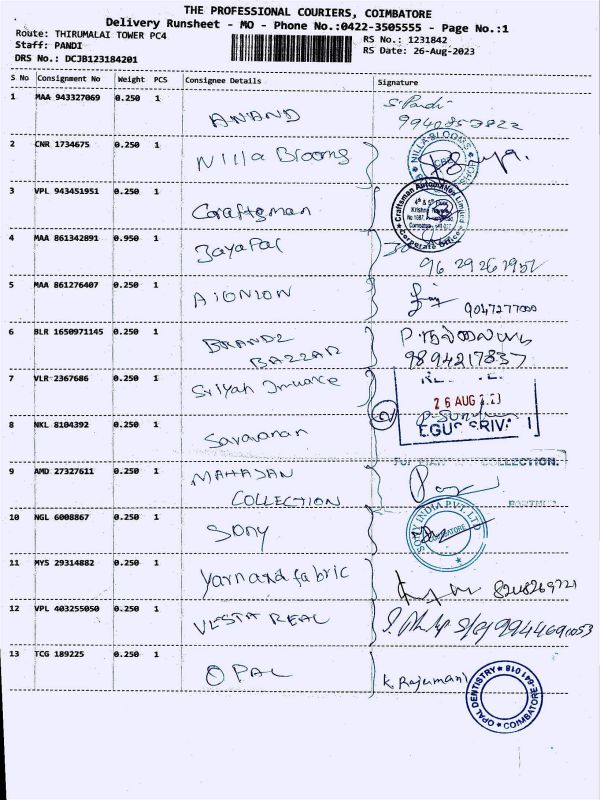 THE PROFESSIONAL COURIERS, COIMBATORE
Delivery Runsheet - MO - Phone No.:0422-3505555 - Page No.:1
Route: THIRUMALAI TOWER PC4
RS No.: 1231842
Staff: PANDI
RS Date: 26-Aug-2023
DRS No.: DCJB123184201
S No Consignment No Weight PCS Consignee Details Signature
1 MAA 943327069 0.250 1 ANAND S. Pandi
2 CNR 1734675 0.250 1 Nilla Blooms NILLA BLOOMS
3 VPL 943451951 0.250 1 Coraftsman Craftsman Automation Limited
4th & 5th Floor
Krishna
Corporate Office
4 MAA 861342891 0.950 1 Jayapal
96 29261952
5 MAA 861276407 0.250 1 AIONION 9047277000
6 BLR 1650971145 0.250 1 BRANDZ
BAZZAR 9894217837
7 VLR 2367686 0.250 1 Sriyah
26 AUG
8 NKL 8104392 0.250 1 Savaanan
9 AMD 27327611 0.250 1 MAHAJAN COLLECTION.
COLLECTION
10 NGL 6008867 0.250 1 Sony SONY INDIA PVT. LTD
COIMBATORE
11 MYS 29314882 0.250 1 Yarnandfabric 8248269721
12 VPL 403255050 0.250 1 VESTA REAL 9944691053
13 TCG 189225 0.250 1 OPAL K. Rajumani
OPAL DENTISTRY
COIMBATORE-641 018